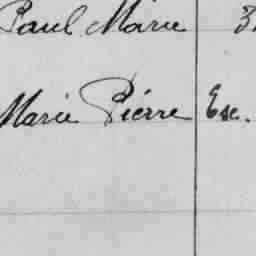 Paul Marie 3
Marie Piérre Esc.